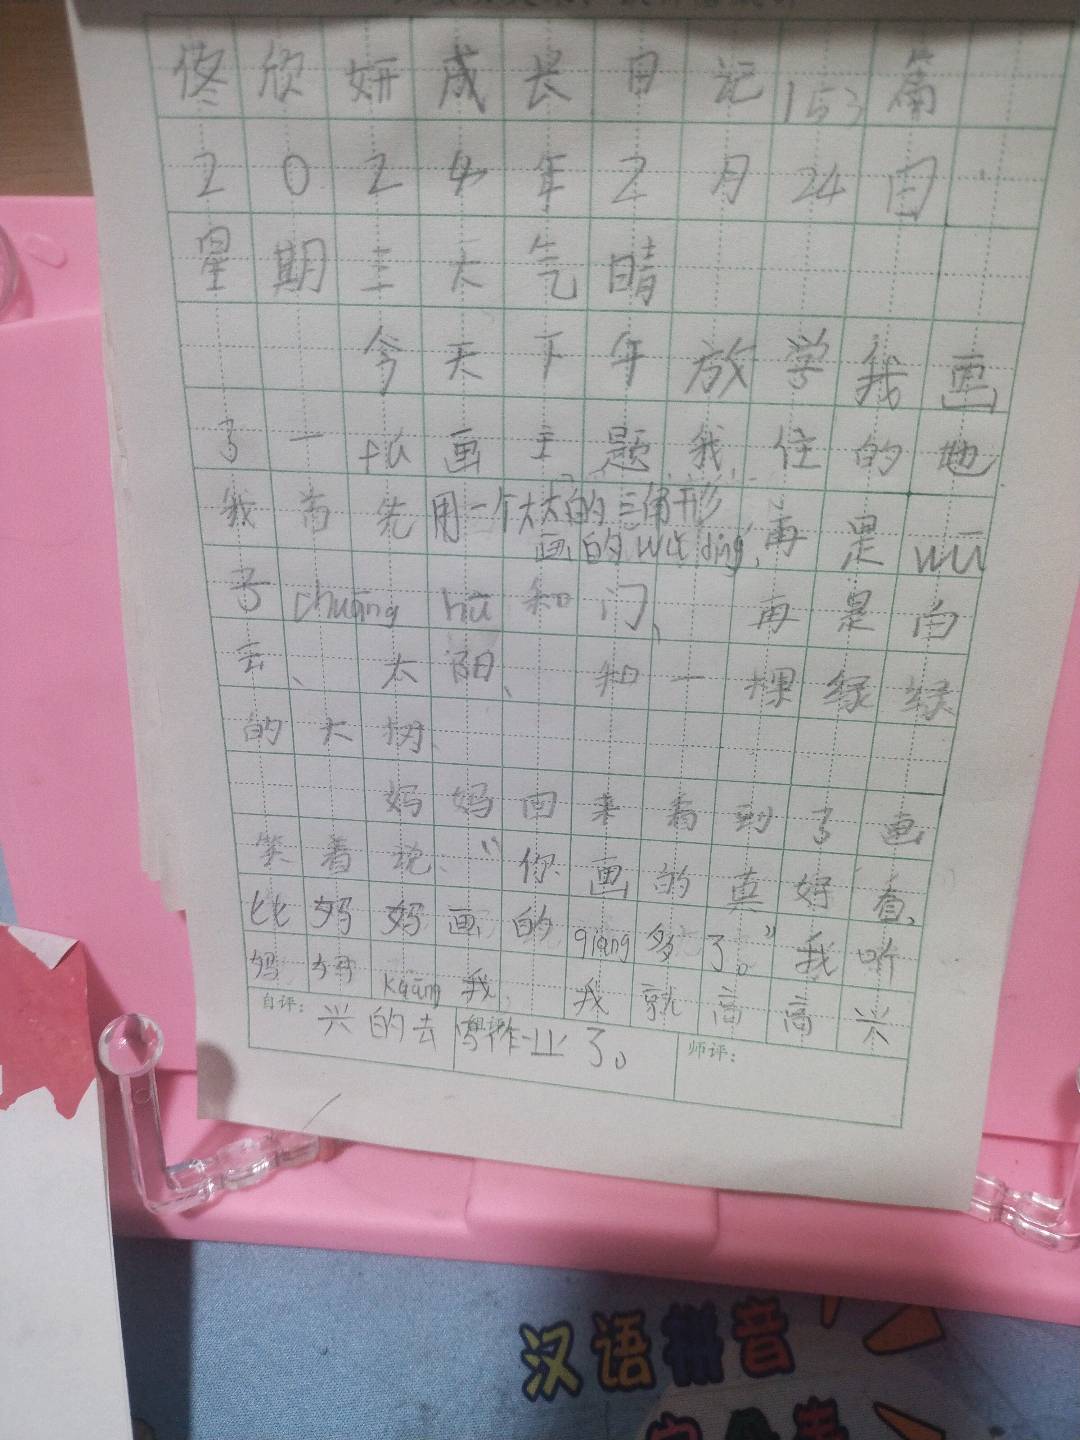 佟欣妍成长日记153篇
2024年2月24日
星期三天气晴
今天下午放学我画
了一fú画主题我住的地
我首先用一个大大的三角形
画的wū dǐng,再是wū
子chuāng hū和门、再是白
云、太阳、和一棵绿绿
的大树、
妈妈回来看到了画
笑着说、“你画的真好看、
比妈妈画的qiáng多了。”我听
妈妈kuāng我、我就高高兴
自评:兴的去写作业了。
师评:
汉语拼音